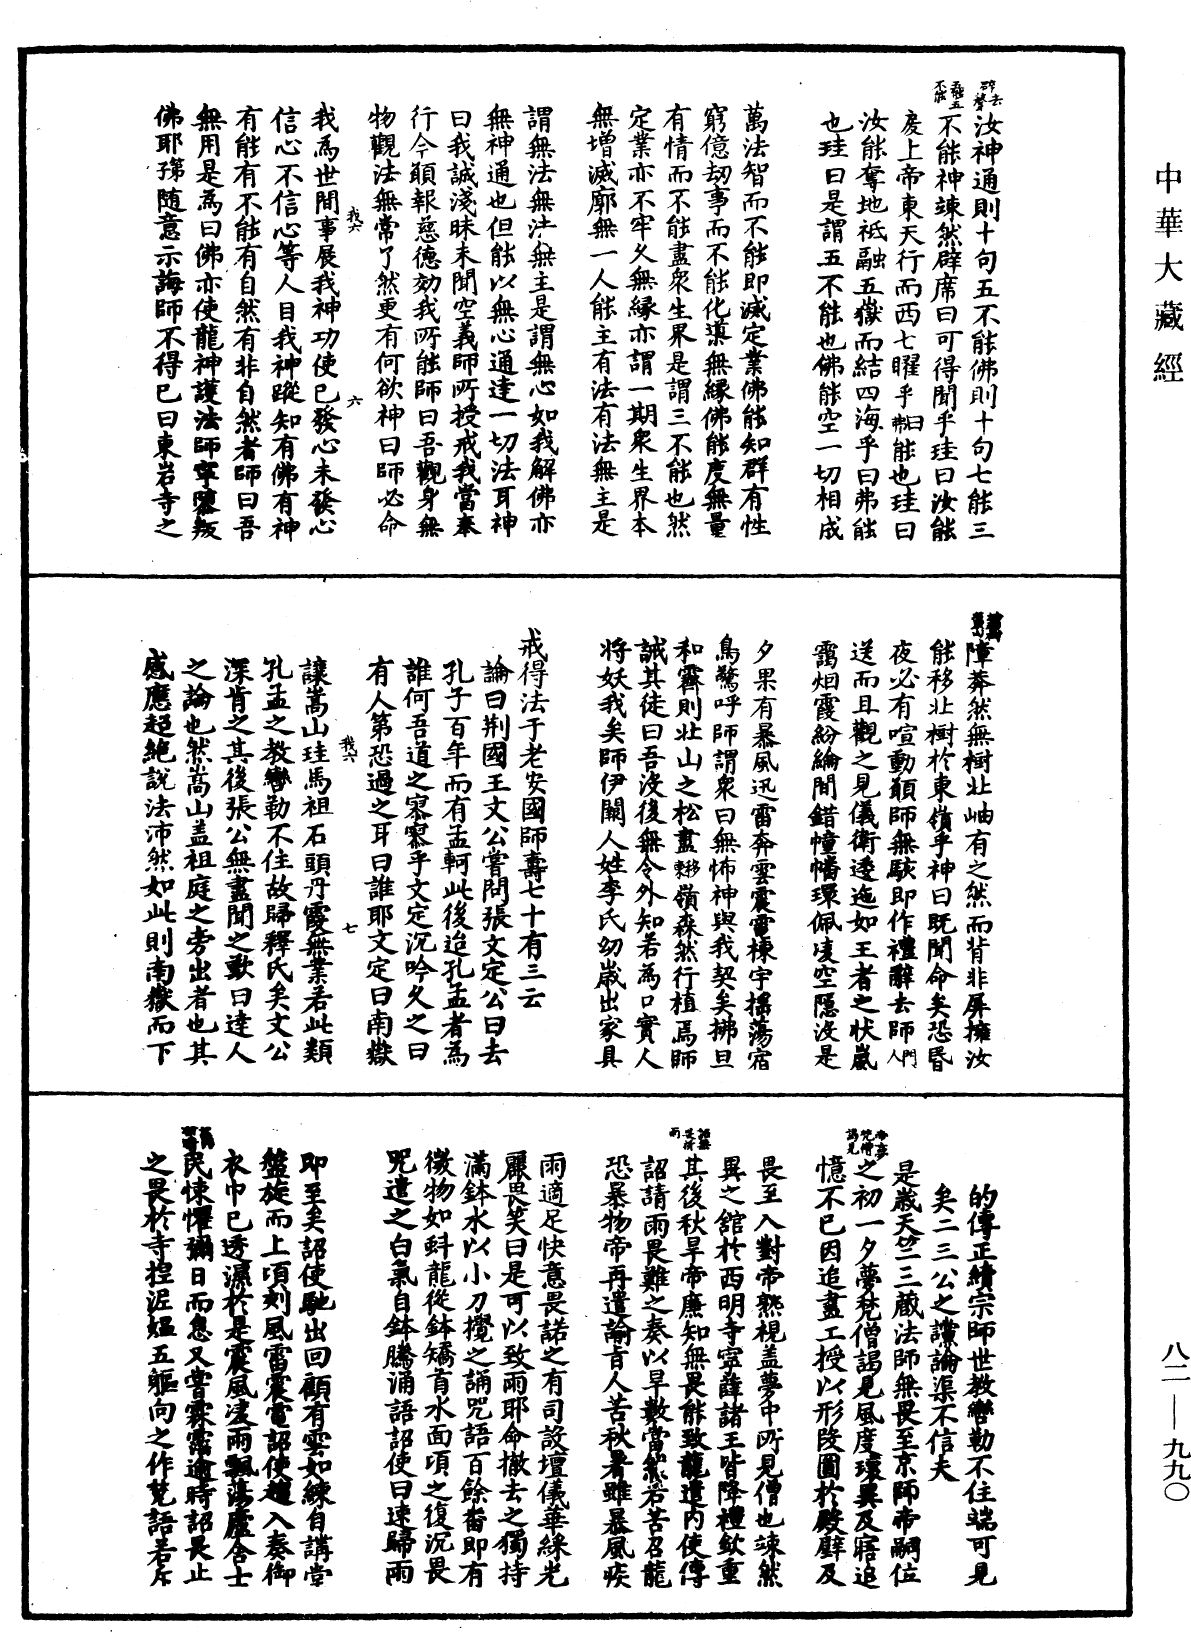 中華大藏經
汝神通則十句五不能佛則十句七能三
不能神竦然辟席曰可得聞乎珪曰汝能
戾上帝東天行而西七曜乎曰弗能也珪曰
汝能奪地祇融五嶽而結四海乎曰弗能
也珪曰是謂五不能也佛能空一切相成
萬法智而不能即滅定業佛能知群有性
窮億劫事而不能化導無緣佛能度無量
有情而不能盡衆生界是謂三不能也然
定業亦不牢久無緣亦謂一期衆生界本
無增減廓無一人能主有法有法無主是
謂無法無法無主是謂無心如我解佛亦
無神通也但能以無心通達一切法耳神
曰我誠淺昧未聞空義師所授戒我當奉
行今願報慈德効我所能師曰吾觀身無
物觀法無常了然更有何欲神曰師必命
我為世間事展我神功使已發心未發心
信心不信心等人目我神蹤知有佛有神
有能有不能有自然有非自然者師曰吾
無用是為曰佛亦使龍神護法師寧隳叛
佛耶第隨意示誨師不得已曰東岩寺之
障莽然無樹北岫有之然而背非屏擁汝
能移北樹於東嶺乎神曰既聞命矣恐昏
夜必有喧動願師無駭即作禮辭去師門人
送而且觀之見儀衛逶迤如王者之狀嵐
靄烟霞紛綸間錯幢幡環佩凌空隱沒是
夕果有暴風迅雷奔雲震電棟宇搖蕩宿
鳥驚呼師謂衆曰無怖神與我契矣拂旦
和霽則北山之松盡移東嶺森然行植焉師
誡其徒曰吾沒後無令外知若為口實人
將妖我矣師伊闕人姓李氏幼歲出家具
戒得法于老安國師壽七十有三云
論曰荊國王文公嘗問張文定公曰去
孔子百年而有孟軻此後迨孔孟者為
誰何吾道之寂寥乎文定沉吟久之曰
有人第恐過之耳曰誰耶文定曰南嶽
讓嵩山珪馬祖石頭丹霞無業若此類
孔孟之教轡勒不住故歸釋氏矣文公
深肯之其後張公無盡聞之歎曰達人
之論也然嵩山蓋祖庭之旁出者也其
感應超絕說法沛然如此則南嶽而下
的傳正續宗師世教轡勒不住端可見
矣二三公之讜論渠不信夫
是歲天竺三藏法師無畏至京師帝嗣位
之初一夕夢梵僧謁見風度瓌異及寤追
憶不已因追畫工授以形段圖於殿壁及
畏至入對帝熟視蓋夢中所見僧也竦然
異之舘於西明寺寧薛諸王皆降禮欽重
其後秋旱帝廉知無畏能致龍遣內使傳
詔請雨畏難之奏以旱數當然若苦召龍
恐暴物帝再遣諭旨人苦秋暑雖暴風疾
雨適足快意畏諾之有司設壇儀華綵光
麗畏笑曰是可以致雨耶命撤去之獨持
滿鉢水以小刀攪之誦咒語百餘番即有
微物如蚪龍從鉢矯首水面頃之復沉畏
咒遣之白氣自鉢騰涌語詔使曰速歸雨
即至矣詔使馳出回顧有雲如練自講堂
盤旋而上頃刻風雷震電詔使趨入奏御
衣巾已透濕於是震風凌雨飄蕩廬舍士
民悚懼彌日而息又嘗霖霪逾時詔畏止
之畏於寺捏泥媼五軀向之作梵語若斥
我六
六
我六
七
八二—九九〇